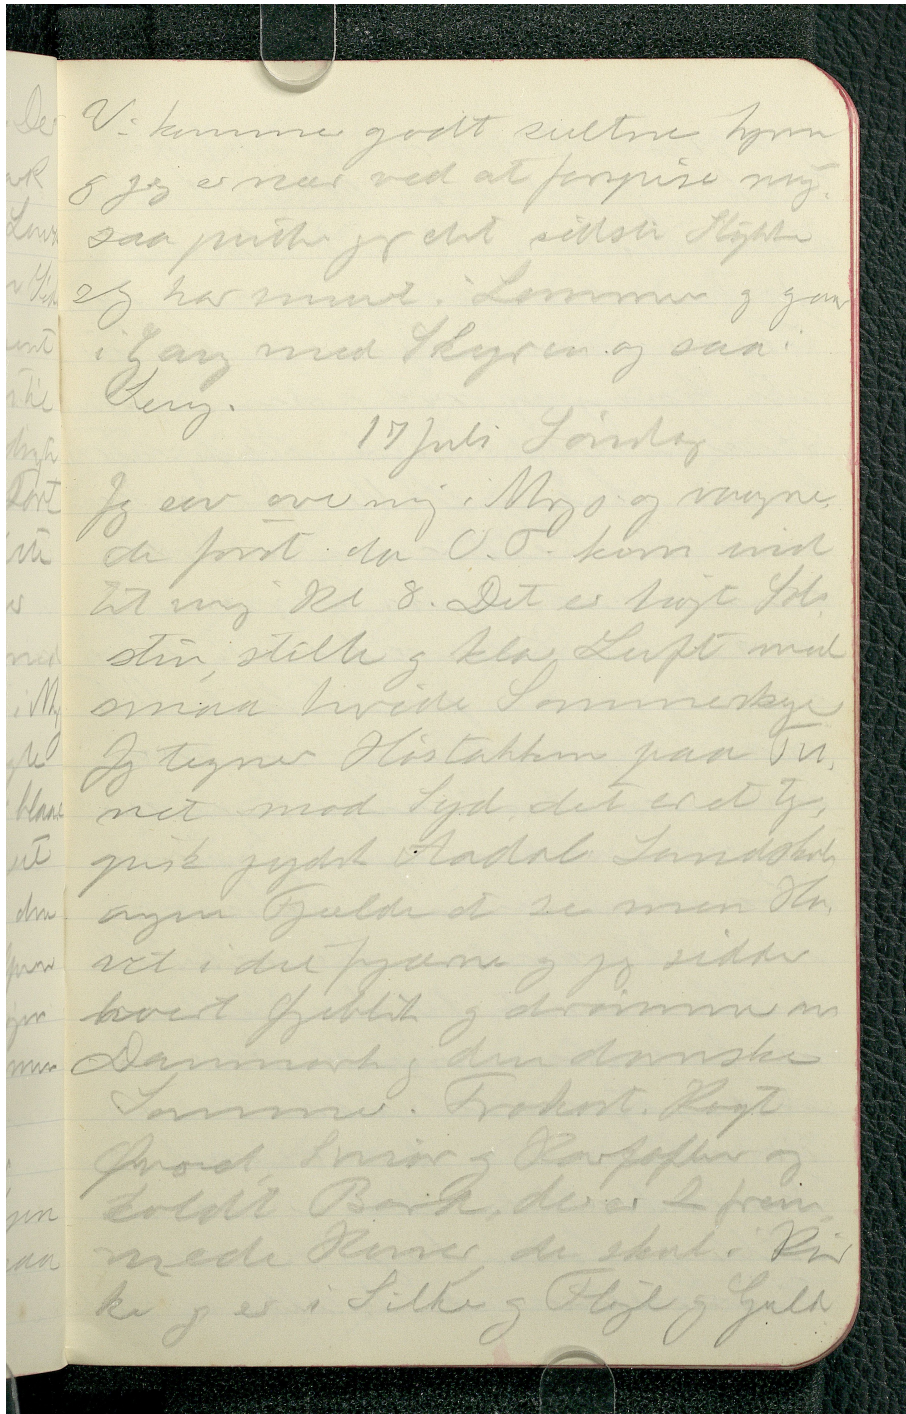 Vi komme godt sultne hjem
og jeg er nær ved at forspise mig.
saa putter jeg det sidste Stykke
jeg har mint i Lommen og gaar
i Gang med Skyren og saa i
Seng.
17 Juli Söndag
Jeg sov over mig i Morges og vaagne,
de først da O.T. kom ind
til mig Kl 8. Det er høgt Sol,
skin, stille og klar Luft med
smaa hvide Sommerskyer
Jeg tegner Höstakken paa Tu,
net mod Syd, det er et ty,
pisk jydsk Aadal Landskab
Fjelde se man Ha,
vet i det fjærne og jeg sidder
hvert Øjeblik og drømmer om
Danmark og den danske
Sommer. Frokost. Kogt
Ørred, Smör og Kartofler og
koldt der er 2 frem,
mede Koner, de skal i Kir
ke og er i Silke og Fløjl og Guld